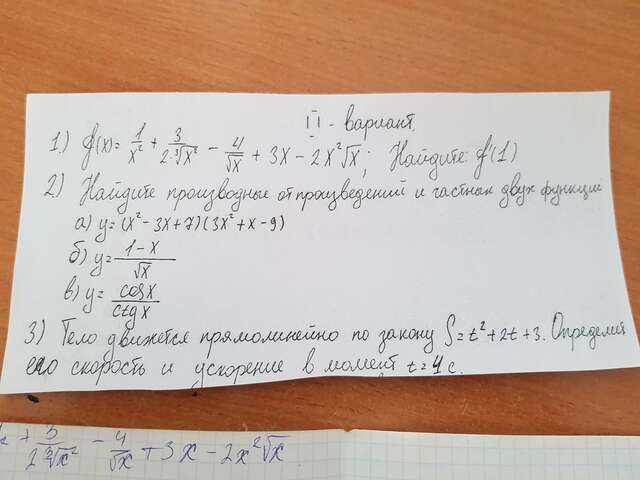 II - вариант.
1.) f(x)= 1/x² + 3/(2·∛x²) - 4/√x + 3x - 2x²√x; Найдите: f(1)
2) Найдите производные от произведений и частных двух функции
а) y=(x²-3x+7)(3x²+x-9)
б) y= (1-x)/√x
в) y= cosx/ctgx
3) Тело движется прямолинейно по закону S=t²+2t+3. Определит
его скорость и ускорение в момент t=4 с.
+ 3/(2∛x²) - 4/√x + 3x - 2x²√x